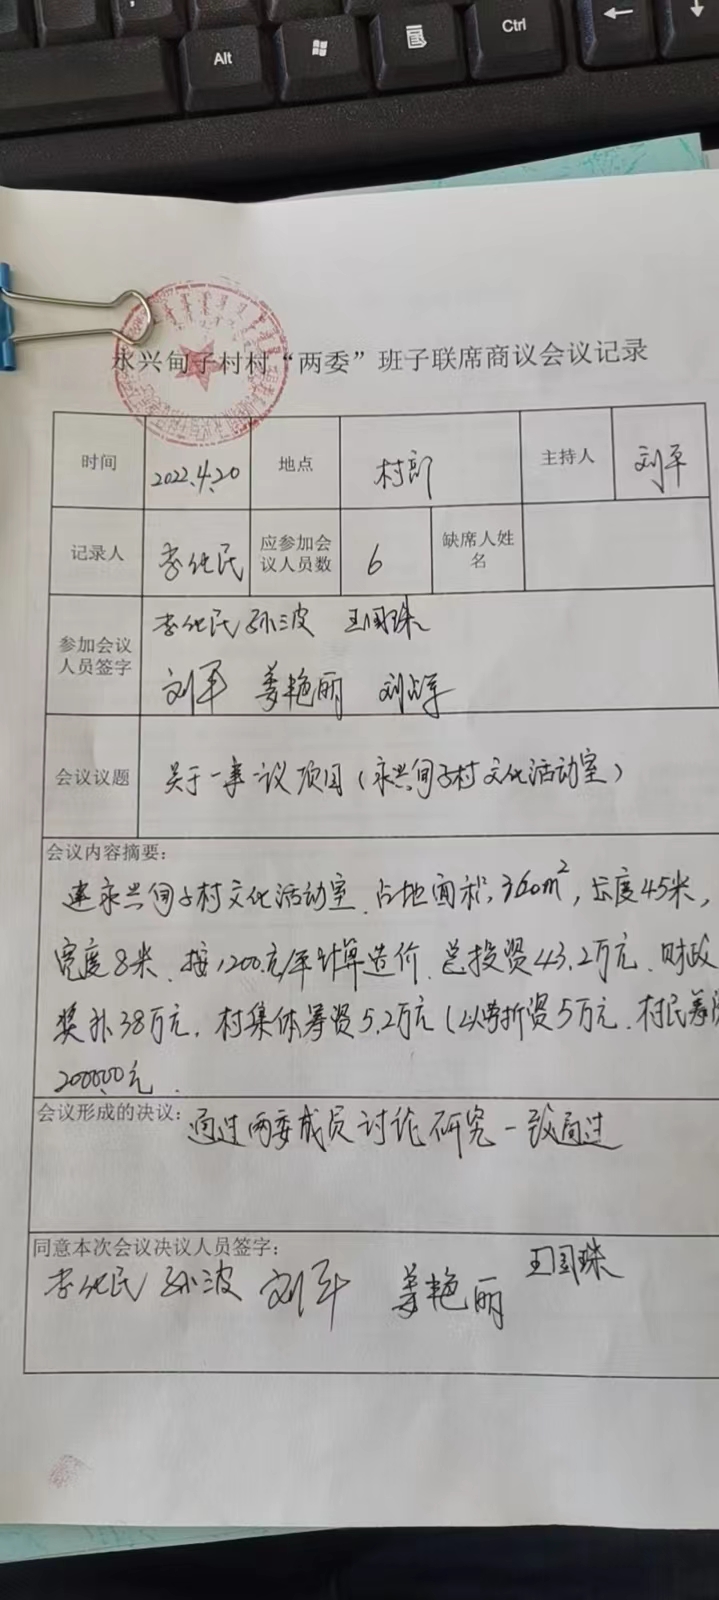 Alt
Ctrl
永兴甸子村村“两委”班子联席商议会议记录
时间 2022.4.20 地点 村部 主持人 刘平
记录人 李化民 应参加会议人员数 6 缺席人姓名
参加会议人员签字 李化民 孙波 王国珠
刘平 姜艳丽
会议议题 关于一事一议项目(永兴甸子村文化活动室)
会议内容摘要:
建永兴甸子村文化活动室.占地面积,360m²,长度45米,
宽度8米.按1200元/平计算造价.总投资43.2万元.财政
奖补38万元.村集体筹资5.2万元(以劳折资5万元.村民筹
2000.00元.
会议形成的决议:通过两委成员讨论研究一致通过
同意本次会议决议人员签字:
李化民 孙波 刘平 姜艳丽 王国珠